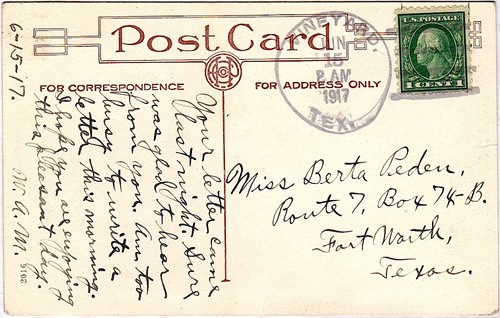 Post Card
FOR CORRESPONDENCE
FOR ADDRESS ONLY
VINEYARD
JUN
15
2 AM
1917
TEX.
U.S. POSTAGE
1 CENT 1
6-15-17.
Your letter came
last night. Sure
was glad to hear
from you. Am too
busy to write a
letter this morning.
I hope you are enjoying
this pleasant day.
W. A. M.
Miss Berta Peden,
Route 7, Box 74-B.
Fort Worth,
Texas.